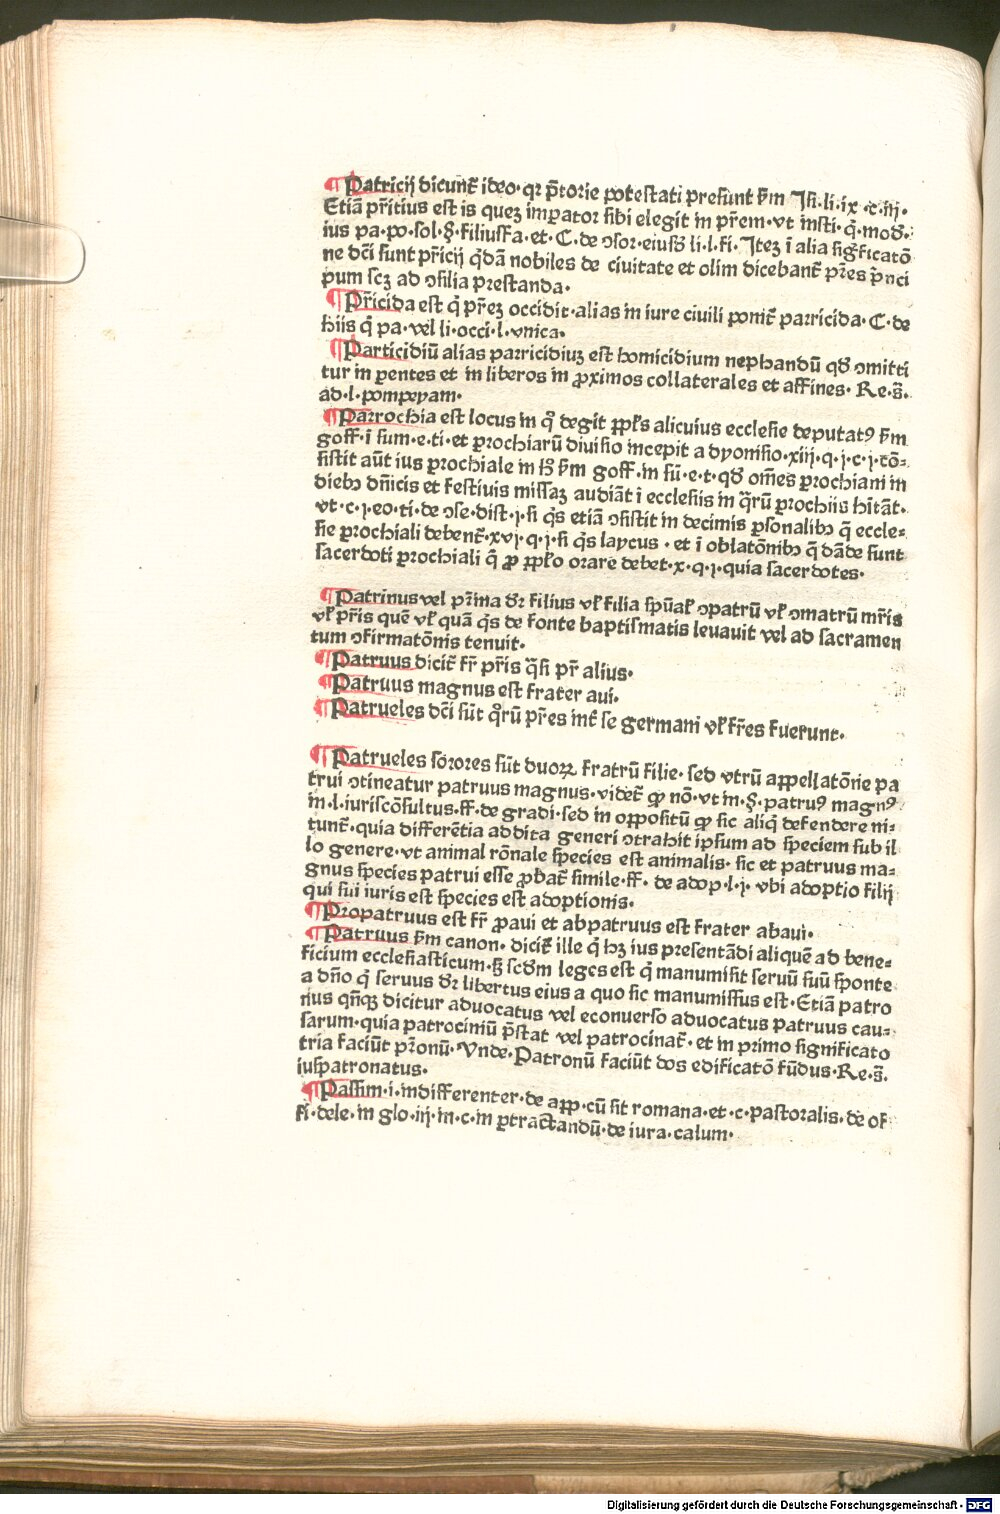 ¶ Patricij dicunt̃ ideo· qꝛ p̃torie potestati presunt ẜm Jsi·li·ix ·c·iij·
Etiã pr̃itius est is quez imꝑatoꝛ sibi elegit in pr̃em·vt insti·q̃·mod̃·:
ius pa·po·sol·§·filiusfa·et·C·de ↄsoꝛ·eiusð li·l·fi·Jtez ĩ alia sigr̃ficatõ
ne dc̃i sunt pr̃icij q̃dã nobiles de ciuitate et olim dicebant̃ pr̃es pr̃nci
pum scz ad ↄsilia prestanda·
¶ Pr̃icida est q̃ pr̃ez occidit·alias in iure ciuili ponit̃ parricida·C·de
hiis q̃ pa·vel li·occi·l·vnica·
¶ Particidiũ alias parricidiuz est homicidium nephandũ qð ↄmitti
tur in ꝑentes et in liberos in ꝓximos collaterales et affines· Re·s̃·
ad·l·pompeyam·
¶ Parrochia est locus in q̊ degit ppl̃s alicuius ecclesie deputatꝰ ẜm
goff·ĩ sum·e·ti·et ꝑrochiarũ diuisio incepit a dyonisio·xiij·q·j·c·j·cõ-
sistit aũt ius ꝑrochiale in h̊ ẜm goff·in sũ·e·t·qð om̃es ꝑrochiani in
diebꝫ dñicis et festiuis missaz audiãt ĩ ecclesiis in q̃rũ ꝑrochiis hĩtãt·
vt·c·j·eo·ti·de ↄse·dist·j·si q̃s etiã ↄsistit in decimis ꝑsonalibꝫ q̃ eccle-
sie ꝑrochiali debent̃·xvj·q·j·si q̃s laycus · et ĩ oblatõnibꝫ q̃ dãde sunt
sacerdoti ꝑrochiali q̃ ꝓ ppl̃o orare debet·x·q·j·quia sacerdotes·
¶ Patrinus vel pr̃ina dr̃ filius vl̃ filia spũal̃ ↄpatrũ vl̃ ↄmatrũ mr̃is
vl̃ pr̃is quẽ vl̃ quã q̃s de fonte baptismatis leuauit vel ad sacramen
tum ↄfirmatõnis tenuit·
¶ Patruus dicit̃ fr̃ pr̃is q̃si pr̃ alius·
¶ Patruus magnus est frater aui·
¶ Patrueles dc̃i sũt q̊rũ pr̃es int̃ se germani vl̃ fr̃es fuerunt·
¶ Patrueles soꝛoꝛes sũt duoꝝ fratrũ filie· sed vtrũ appellatõnie pa
trui ↄtineatur patruus magnus·videt̃ ꝙ nõ·vt in·§·patruꝰ magnꝰ
in·l·iuriscõsultus·ff·de gradi·sed in oppositũ ꝙ sic aliq̃ defendere ni-
tunt̃·quia differẽtia addita generi ↄtrahit ipsum ad speciem sub il
lo genere·vt animal rõnale species est animalis· sic et patruus ma-
gnus species patrui esse ꝓbat̃ simile·ff· de adop·l·j· vbi adoptio filij
qui sui iuris est species est adoptionis·
¶ Propatruus est fr̃ ꝓaui et abpatruus est frater abaui·
¶ Patruus ẜm canon· dicit̃ ille q̃ hꝫ ius presentãdi aliquẽ ad bene-
ficium ecclesiasticum·ẞ scðm leges est q̃ manumisit seruũ suũ sponte
a dño q̃ seruus dr̃ libertus eius a quo sic manumissus est·Etiã patro
nus qñqꝫ dicitur aduocatus vel econuerso aduocatus patruus cau-
sarum·quia patrociniũ p̃stat vel patrocinat̃·et in primo significato
tria faciũt pr̃onũ·Vnde·Patronũ faciũt dos edificatõ fũdus·Re·s̃·
iuspatronatus·
¶ Passim·i·indifferenter·de app·cũ sit romana·et·c·pastoralis·de of
fi·dele·in glo·iij·in·c·in ꝑtractandũ·de iura·calum·
Digitalisierung gefördert durch die Deutsche Forschungsgemeinschaft - DFG